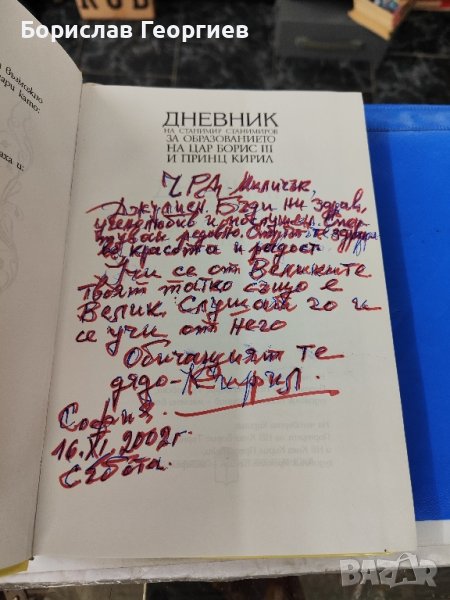 Борислав Георгиев
възможно
като:
и:
ДНЕВНИК
НА СТАНИМИР СТАНИМИРОВ
ЗА ОБРАЗОВАНИЕТО
НА ЦАР БОРИС III
И ПРИНЦ КИРИЛ
ЧРД, Миличък,
Джулиен. Бъди ни здрав,
ученолюбив и послушен. Спор-
тувай редовно. Спортът е здра-
ве, красота и радост
Учи се от Великите
твоят татко също е
Велик. Слушай го и
се учи от него
Обичащият те
дядо-Кирил.
София.
16.XI.2002г.
Събота.
bazar